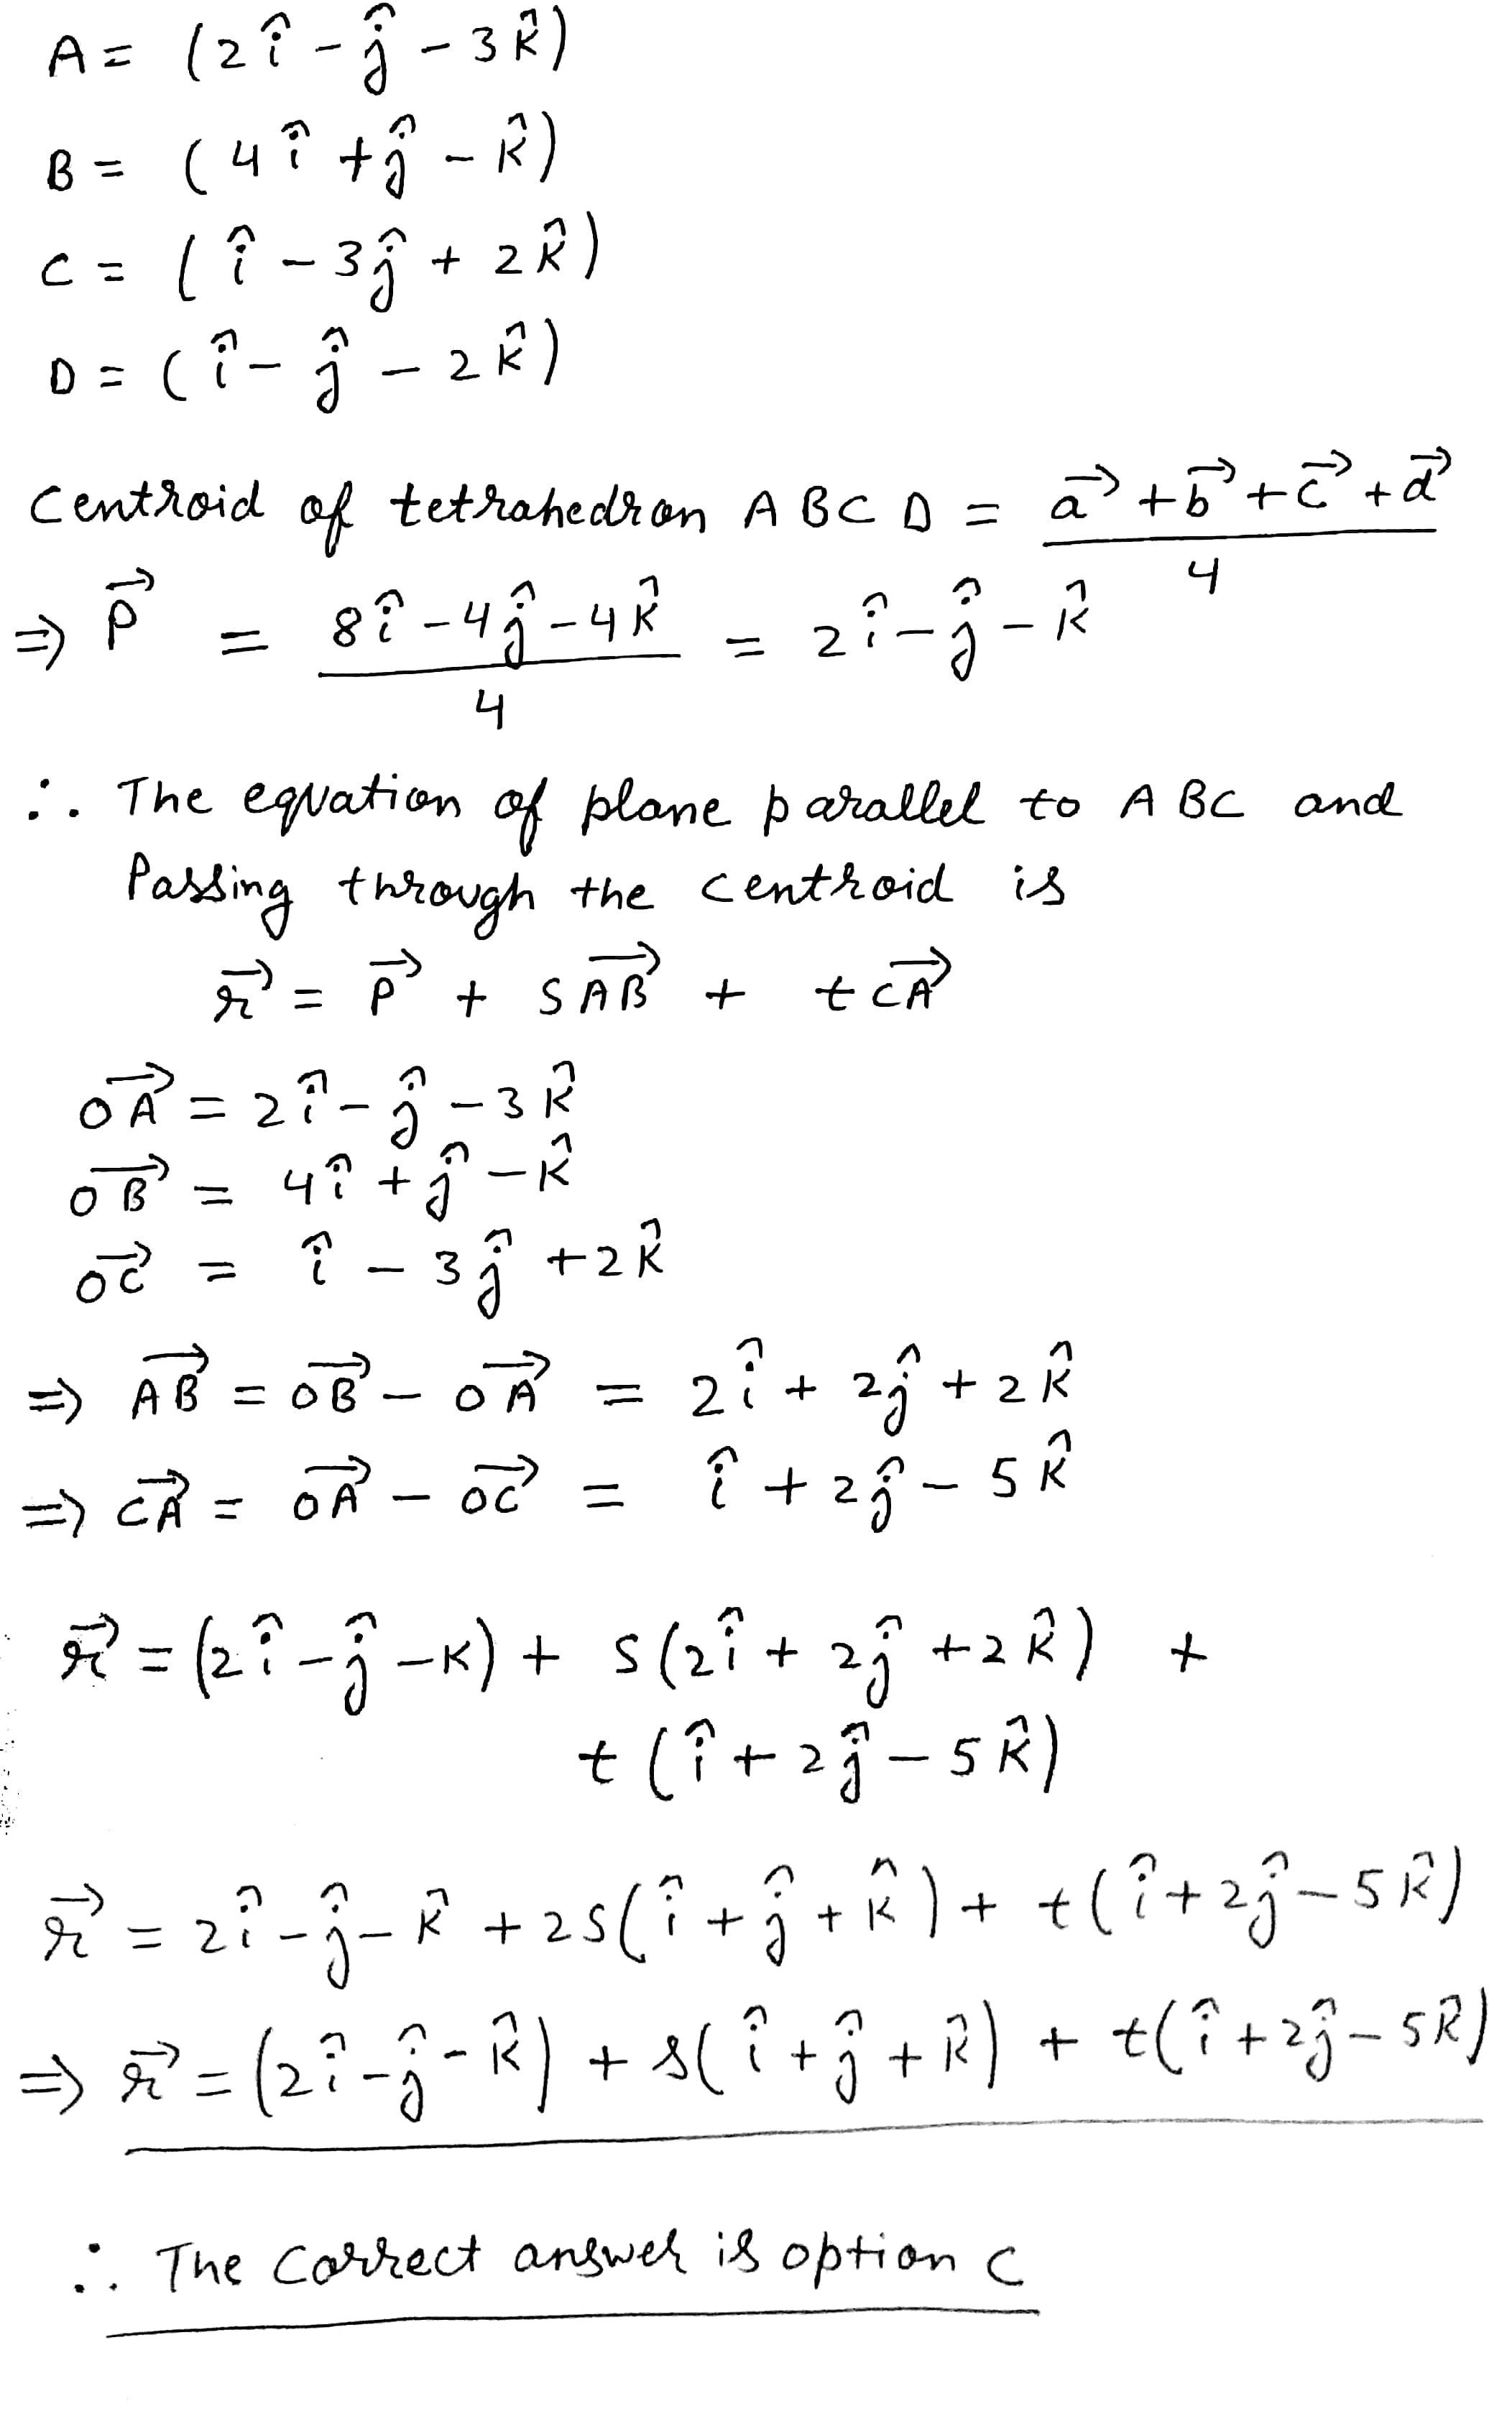 A = (2î - ĵ - 3k̂)
B = (4î + ĵ - k̂)
C = (î - 3ĵ + 2k̂)
D = (î - ĵ - 2k̂)
Centroid of tetrahedron ABCD = (a⃗ + b⃗ + c⃗ + d⃗)/4
⇒ P⃗ = (8î - 4ĵ - 4k̂)/4 = 2î - ĵ - k̂
∴ The equation of plane parallel to ABC and
Passing through the centroid is
r⃗ = P⃗ + S AB⃗ + t CA⃗
OA⃗ = 2î - ĵ - 3k̂
OB⃗ = 4î + ĵ - k̂
OC⃗ = î - 3ĵ + 2k̂
⇒ AB⃗ = OB⃗ - OA⃗ = 2î + 2ĵ + 2k̂
⇒ CA⃗ = OA⃗ - OC⃗ = î + 2ĵ - 5k̂
r⃗ = (2î - ĵ - k) + S(2î + 2ĵ + 2k̂) +
t(î + 2ĵ - 5k̂)
r⃗ = 2î - ĵ - k̂ + 2S(î + ĵ + k̂) + t(î + 2ĵ - 5k̂)
⇒ r⃗ = (2î - ĵ - k̂) + s(î + ĵ + k̂) + t(î + 2ĵ - 5k̂)
∴ The Correct answer is option C